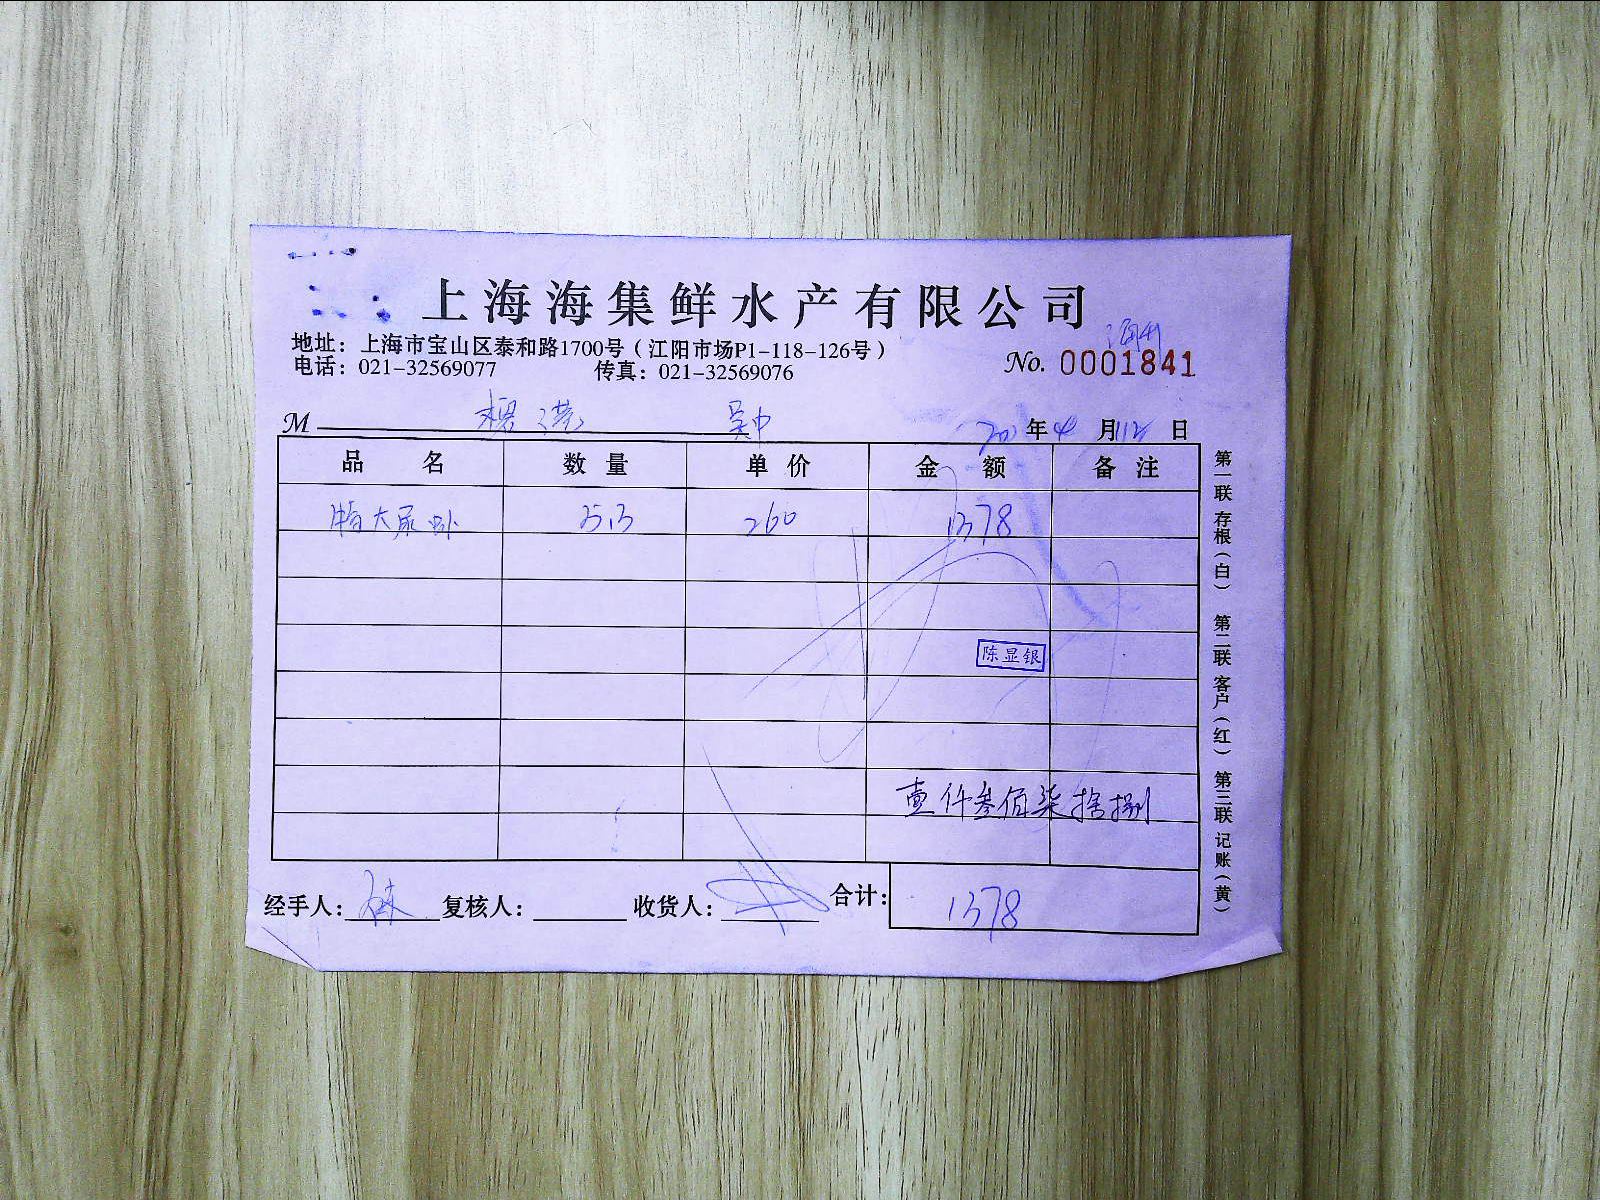 上海海集鲜水产有限公司
地址：上海市宝山区泰和路1700号（江阳市场P1-118-126号）
电话：021-32569077 传真：021-32569076
No. 0001841
M
年4月12日
品名 数量 单价 金额 备注
特大尿虾 5.3 260 1378
陈显银
壹仟叁佰柒拾捌
经手人： 复核人： 收货人： 合计：1378
第一联 存根（白） 第二联 客户（红） 第三联 记账（黄）